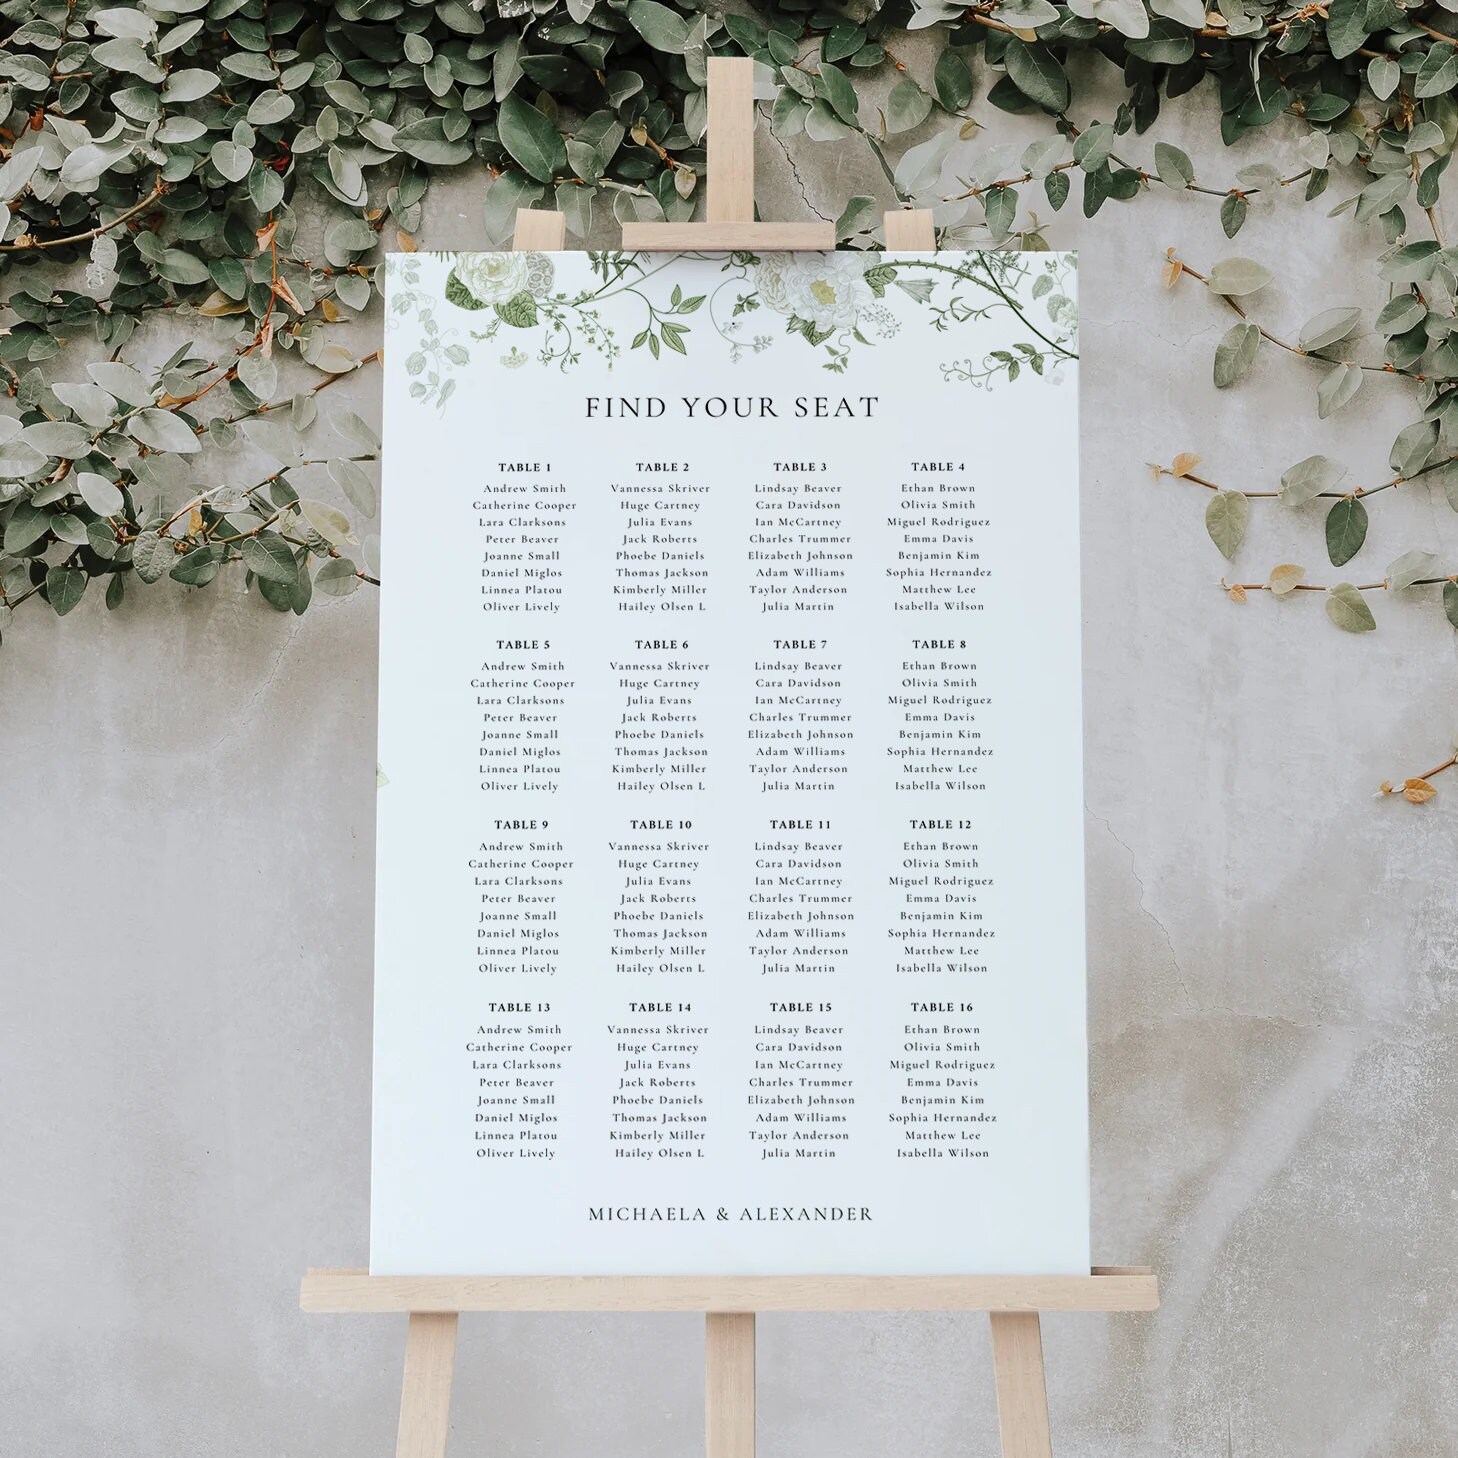 FIND YOUR SEAT
TABLE 1
Andrew Smith
Catherine Cooper
Lara Clarksons
Peter Beaver
Joanne Small
Daniel Miglos
Linnea Platou
Oliver Lively
TABLE 2
Vannessa Skriver
Huge Cartney
Julia Evans
Jack Roberts
Phoebe Daniels
Thomas Jackson
Kimberly Miller
Hailey Olsen L
TABLE 3
Lindsay Beaver
Cara Davidson
Ian McCartney
Charles Trummer
Elizabeth Johnson
Adam Williams
Taylor Anderson
Julia Martin
TABLE 4
Ethan Brown
Olivia Smith
Miguel Rodriguez
Emma Davis
Benjamin Kim
Sophia Hernandez
Matthew Lee
Isabella Wilson
TABLE 5
Andrew Smith
Catherine Cooper
Lara Clarksons
Peter Beaver
Joanne Small
Daniel Miglos
Linnea Platou
Oliver Lively
TABLE 6
Vannessa Skriver
Huge Cartney
Julia Evans
Jack Roberts
Phoebe Daniels
Thomas Jackson
Kimberly Miller
Hailey Olsen L
TABLE 7
Lindsay Beaver
Cara Davidson
Ian McCartney
Charles Trummer
Elizabeth Johnson
Adam Williams
Taylor Anderson
Julia Martin
TABLE 8
Ethan Brown
Olivia Smith
Miguel Rodriguez
Emma Davis
Benjamin Kim
Sophia Hernandez
Matthew Lee
Isabella Wilson
TABLE 9
Andrew Smith
Catherine Cooper
Lara Clarksons
Peter Beaver
Joanne Small
Daniel Miglos
Linnea Platou
Oliver Lively
TABLE 10
Vannessa Skriver
Huge Cartney
Julia Evans
Jack Roberts
Phoebe Daniels
Thomas Jackson
Kimberly Miller
Hailey Olsen L
TABLE 11
Lindsay Beaver
Cara Davidson
Ian McCartney
Charles Trummer
Elizabeth Johnson
Adam Williams
Taylor Anderson
Julia Martin
TABLE 12
Ethan Brown
Olivia Smith
Miguel Rodriguez
Emma Davis
Benjamin Kim
Sophia Hernandez
Matthew Lee
Isabella Wilson
TABLE 13
Andrew Smith
Catherine Cooper
Lara Clarksons
Peter Beaver
Joanne Small
Daniel Miglos
Linnea Platou
Oliver Lively
TABLE 14
Vannessa Skriver
Huge Cartney
Julia Evans
Jack Roberts
Phoebe Daniels
Thomas Jackson
Kimberly Miller
Hailey Olsen L
TABLE 15
Lindsay Beaver
Cara Davidson
Ian McCartney
Charles Trummer
Elizabeth Johnson
Adam Williams
Taylor Anderson
Julia Martin
TABLE 16
Ethan Brown
Olivia Smith
Miguel Rodriguez
Emma Davis
Benjamin Kim
Sophia Hernandez
Matthew Lee
Isabella Wilson
MICHAELA & ALEXANDER